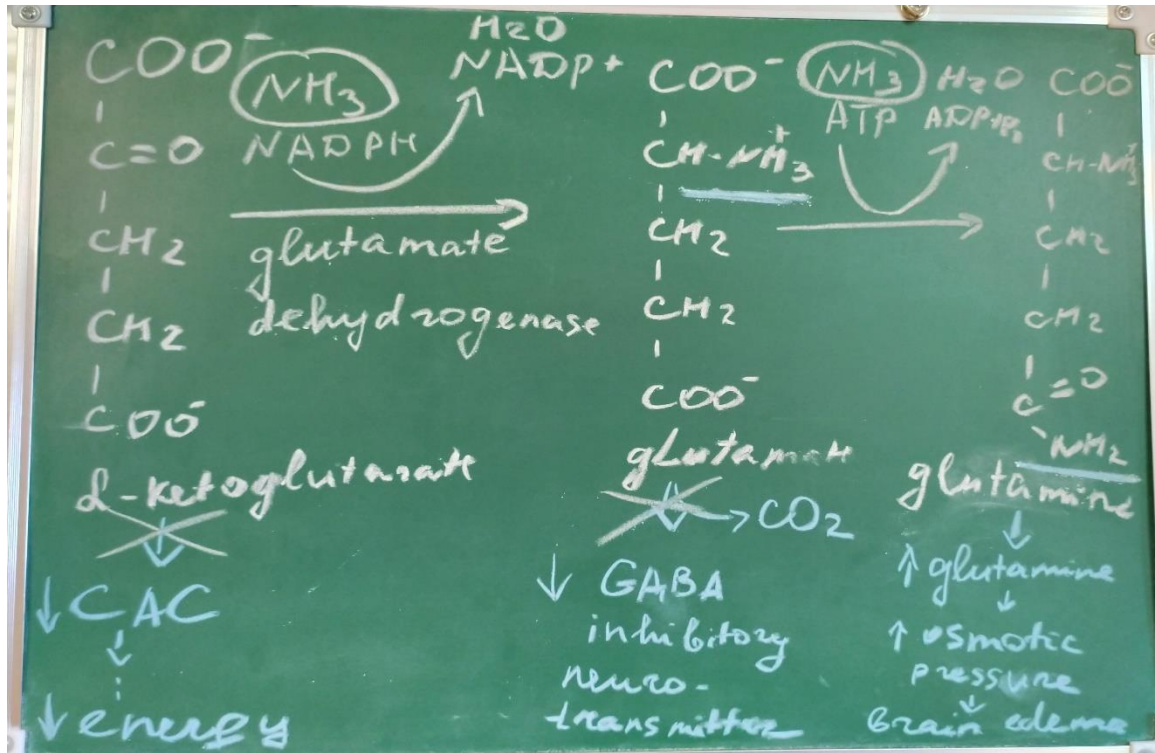 COO⁻
C=O
CH2
CH2
COO⁻
α-ketoglutarate
↓ CAC
↓ energy
NH3
NADPH
H2O
NADP+
glutamate
dehydrogenase
COO⁻
CH-NH3⁺
CH2
CH2
COO⁻
glutamate
→ CO2
↓ GABA
inhibitory
neuro-
transmitter
NH3
ATP
H2O
ADP+Pi
COO⁻
CH-NH3⁺
CH2
CH2
C=O
NH2
glutamine
↑ glutamine
↑ osmotic
pressure
brain edema